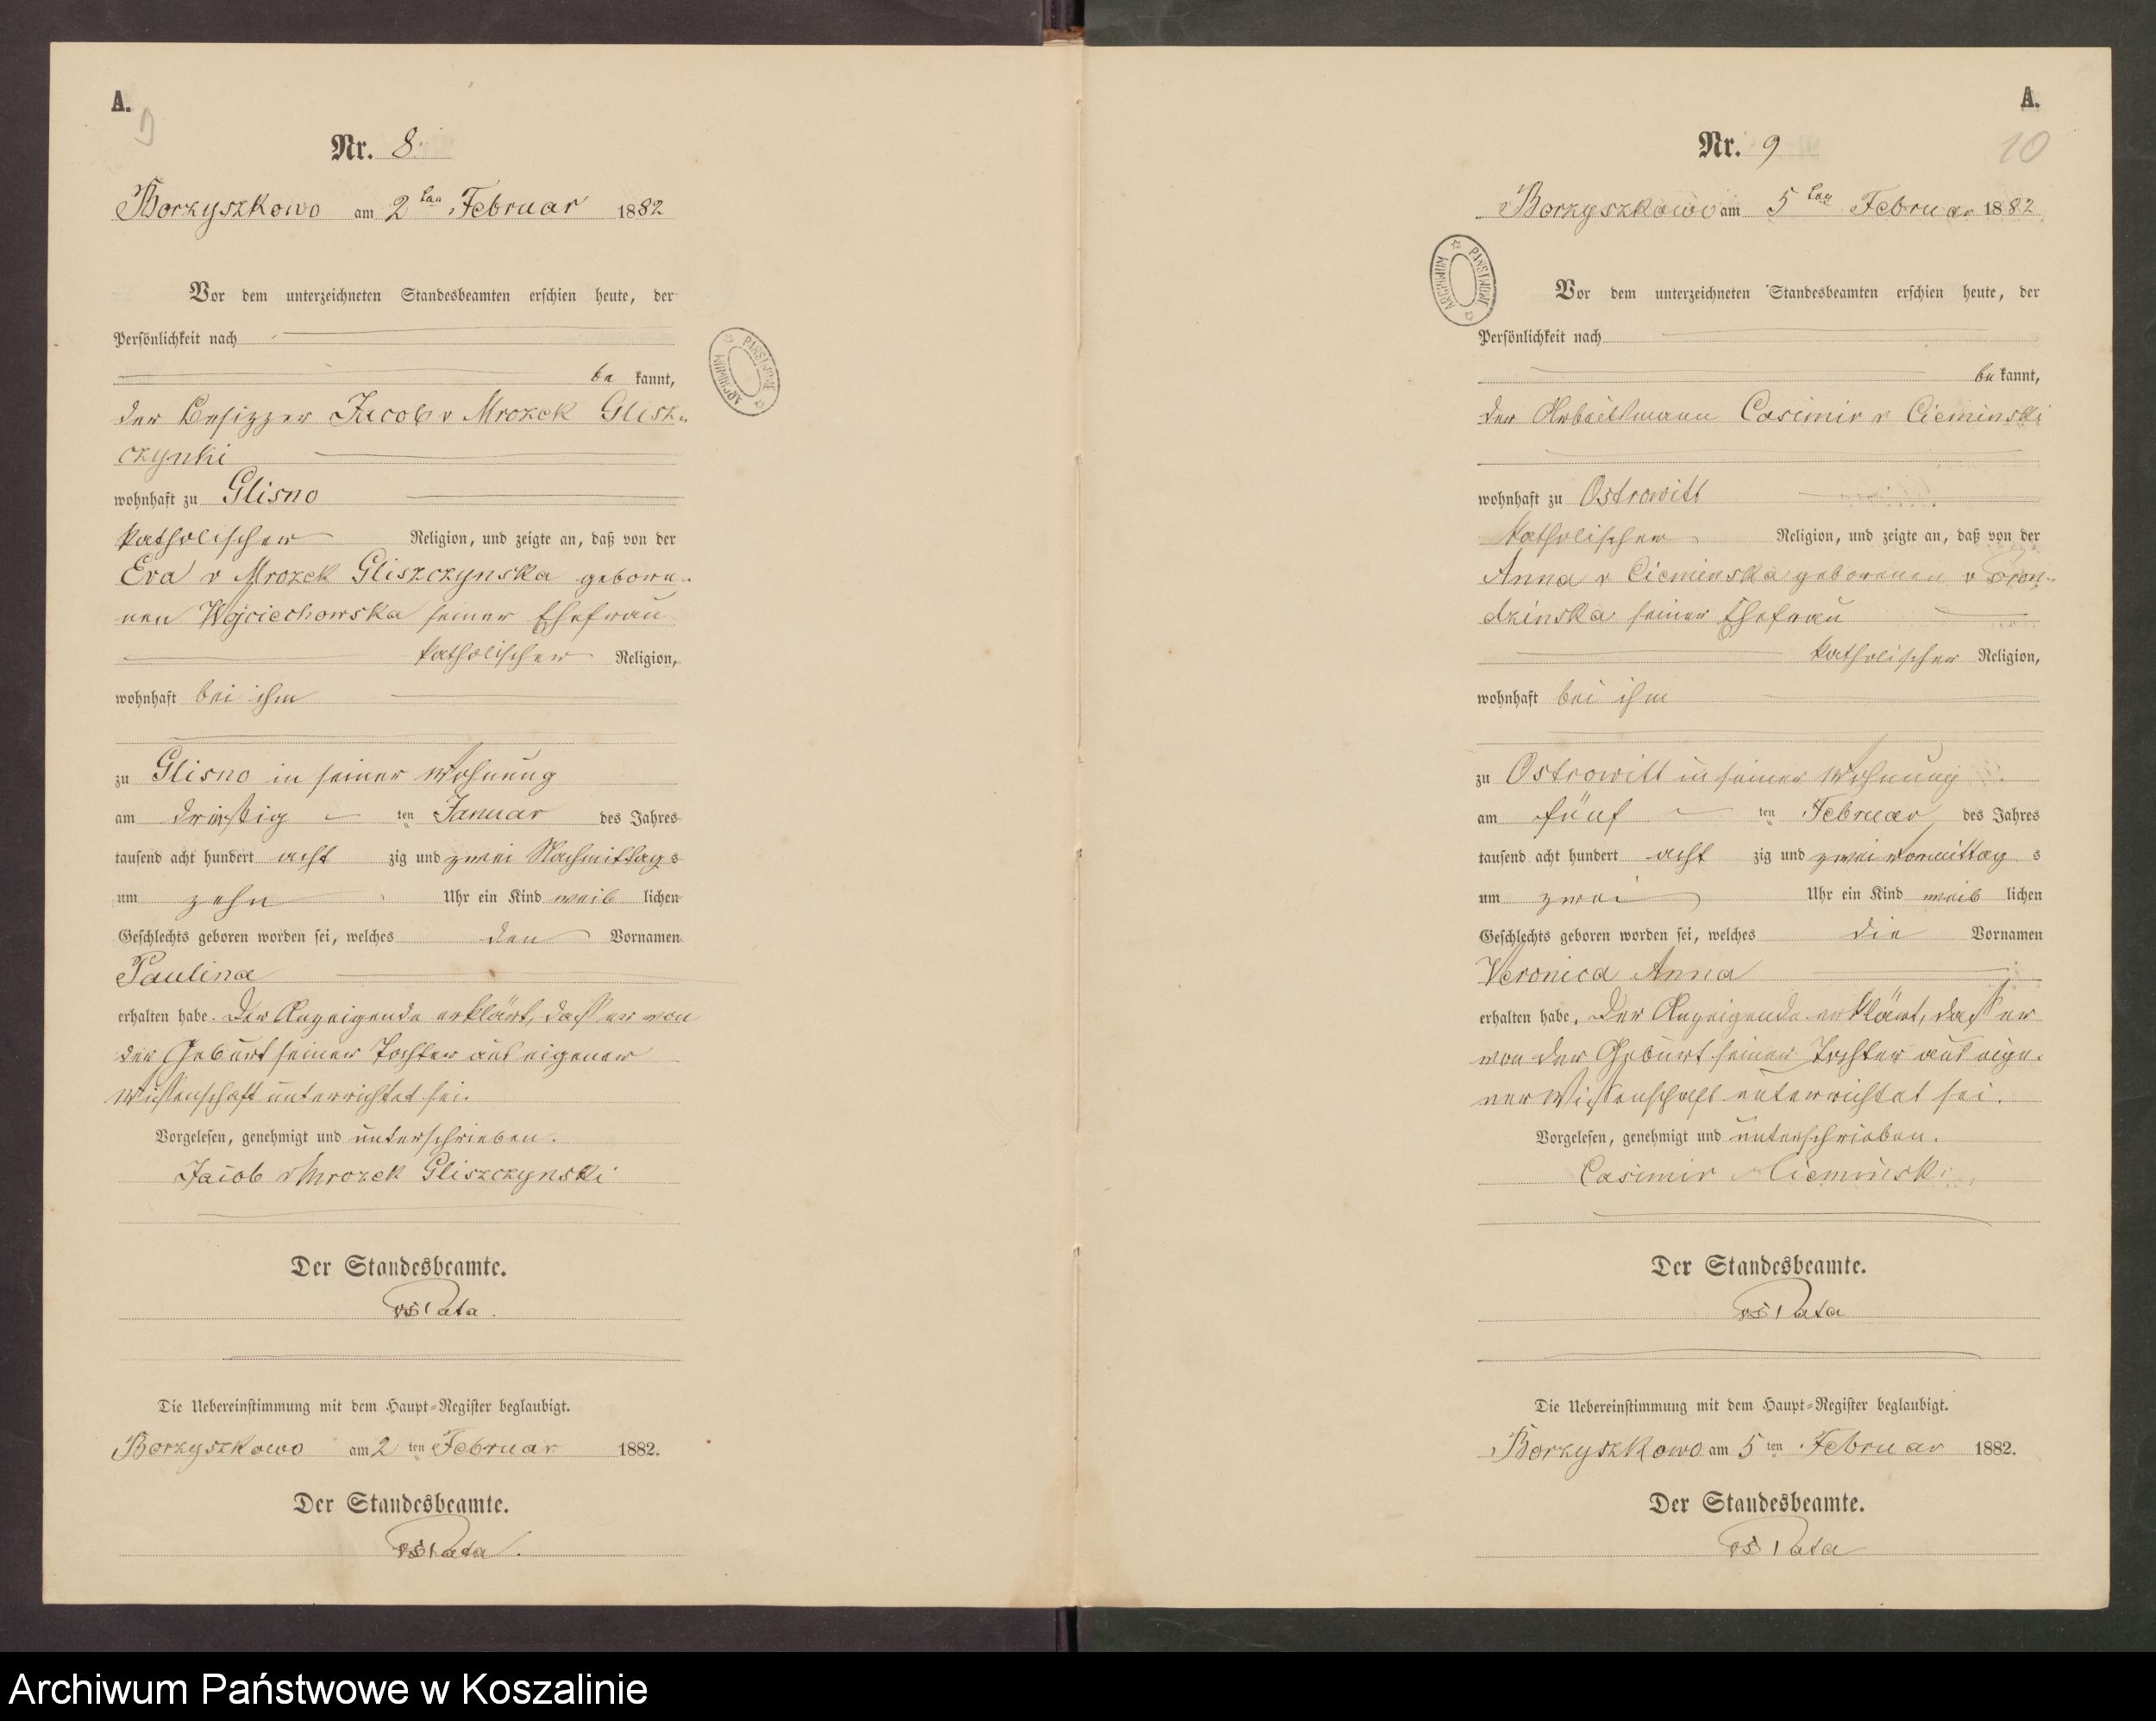 A.
9
Nr. 8.
Borzyszkowo am 2ten Februar 1882
Vor dem unterzeichneten Standesbeamten erschien heute, der
Persönlichkeit nach
be kannt,
der Besitzer Jacob v Mrozek Glisz-
czynki
wohnhaft zu Glisno
katholischer Religion, und zeigte an, daß von der
Eva v Mrozek Gliszczynska gebore-
nen Wojciechowska seiner Ehefrau
katholischer Religion,
wohnhaft bei ihm
zu Glisno in seiner Wohnung
am dreißig ten Januar des Jahres
tausend acht hundert acht zig und zwei Nachmittag s
um zehn Uhr ein Kind weib lichen
Geschlechts geboren worden sei, welches den Vornamen
Paulina
erhalten habe. Der Anzeigende erklärt, daß er von
der Geburt seiner Tochter aus eigener
Wissenschaft unterrichtet sei.
Vorgelesen, genehmigt und unterschrieben.
Jacob v Mrozek Gliszczynski
Der Standesbeamte.
Die Uebereinstimmung mit dem Haupt-Register beglaubigt.
Borzyszkowo am 2 ten Februar 1882.
Der Standesbeamte.
ARCHIWUM PAŃSTWOWE
A.
10
Nr. 9
Borzyszkowo am 5ten Februar 1882
ARCHIWUM PAŃSTWOWE
Vor dem unterzeichneten Standesbeamten erschien heute, der
Persönlichkeit nach
be kannt,
der Arbeitsmann Casimir v Cieminski
wohnhaft zu Ostrowitt
katholischer Religion, und zeigte an, daß von der
Anna v Cieminska geborenen v
dzinska seiner Ehefrau
katholischer Religion,
wohnhaft bei ihm
zu Ostrowitt in seiner Wohnung
am fünf ten Februar des Jahres
tausend acht hundert acht zig und zwei Vormittag s
um zwei Uhr ein Kind weib lichen
Geschlechts geboren worden sei, welches die Vornamen
Veronica Anna
erhalten habe. Der Anzeigende erklärt, daß er
von der Geburt seiner Tochter aus eige-
ner Wissenschaft unterrichtet sei.
Vorgelesen, genehmigt und unterschrieben.
Casimir v Cieminski
Der Standesbeamte.
Die Uebereinstimmung mit dem Haupt-Register beglaubigt.
Borzyszkowo am 5 ten Februar 1882.
Der Standesbeamte.
Archiwum Państwowe w Koszalinie